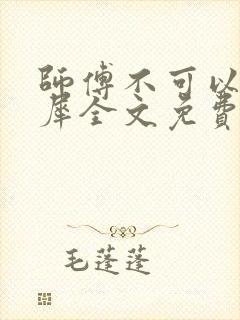 師傅不可以
犀全文免費
毛蓬蓬